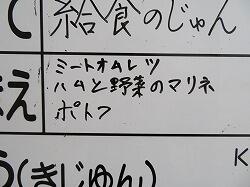 て 給食のじゅん
まえ ミートオムレツ
ハムと野菜のマリネ
ポトフ
う(きじゅん)
K